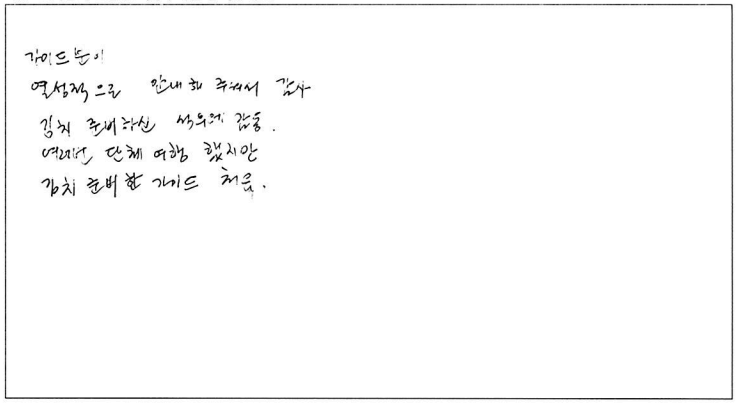 가이드분이
열성적으로 안내해 주셔서 감사
김치 준비하신 감동.
여러번 단체 여행 했지만
김치 준비한 가이드 처음.